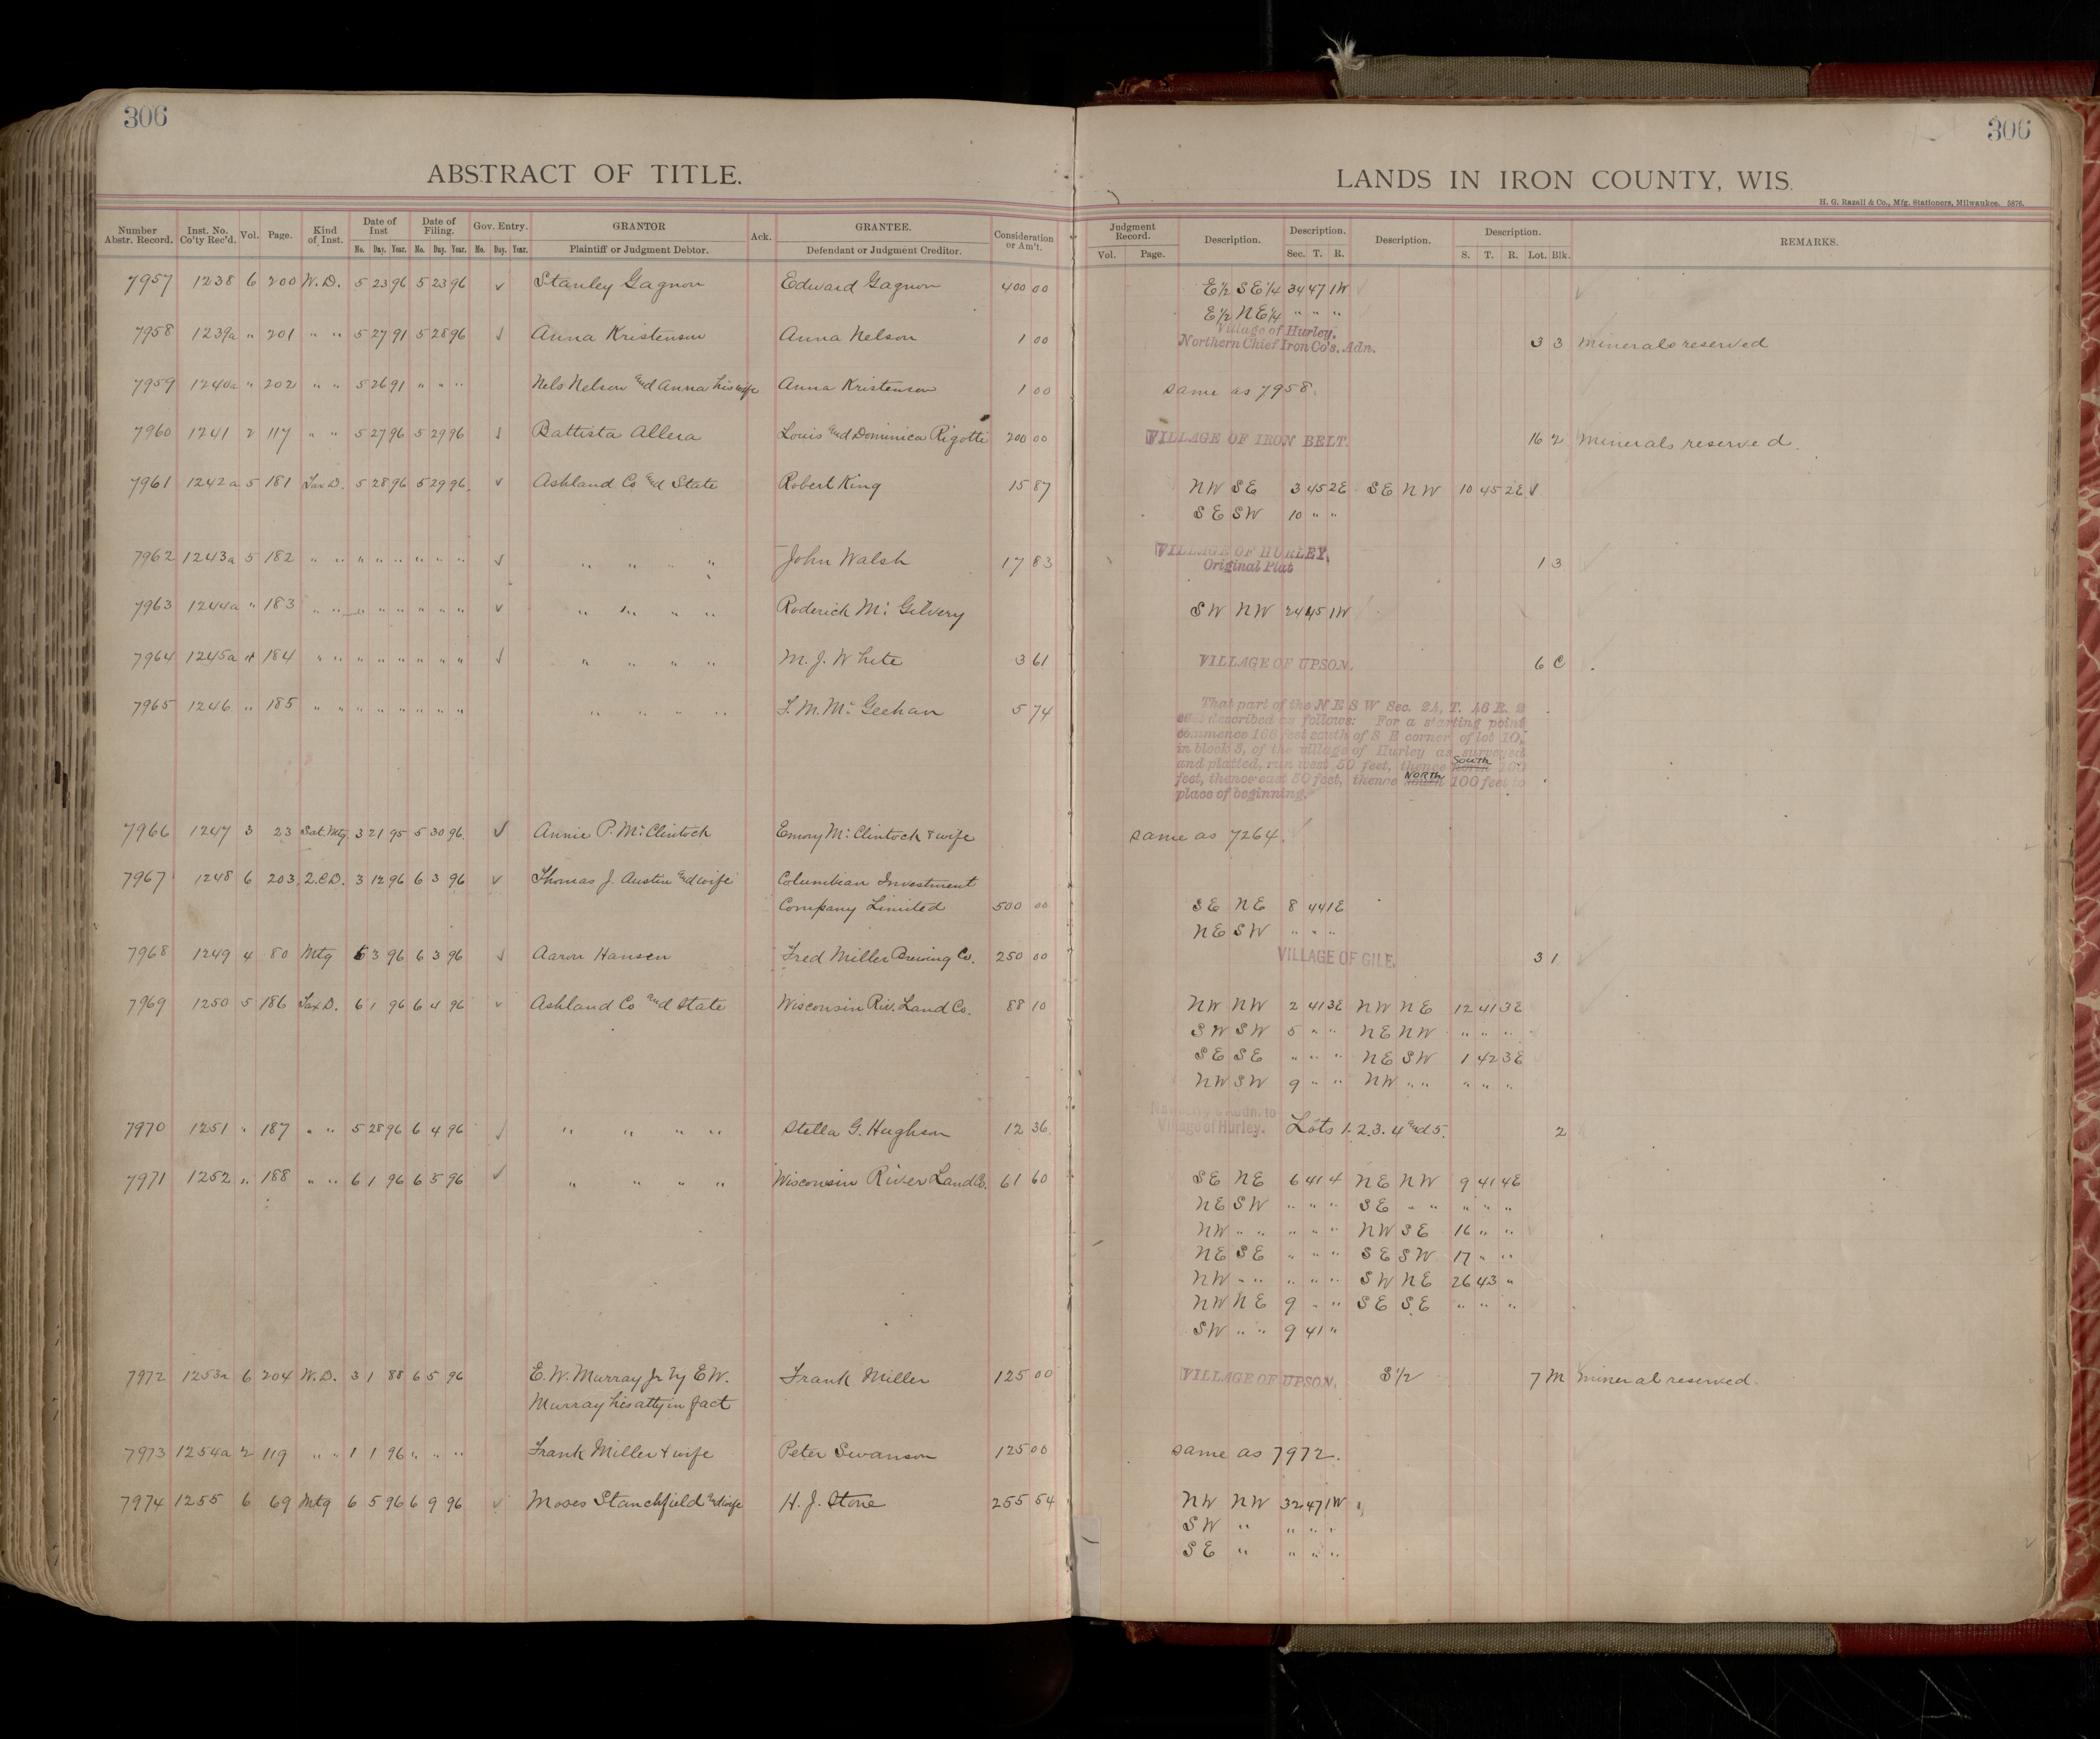 306
306
ABSTRACT OF TITLE.
LANDS IN IRON COUNTY, WIS.
H. G. Razall & Co., Mfg. Stationers, Milwaukee. 5876.
Number Abstr. Record. Inst. No. Co'ty Rec'd. Vol. Page. Kind of Inst. Date of Inst Mo. Day. Year. Date of Filing. Mo. Day. Year. Gov. Entry. Mo. Day. Year. GRANTOR Plaintiff or Judgment Debtor. Ack. GRANTEE. Defendant or Judgment Creditor. Consideration or Am't. Judgment Record. Vol. Page. Description. Description. Sec. T. R. Description. Description. S. T. R. Lot. Blk. REMARKS.
7957 1238 6 200 W.D. 5 23 96 5 23 96 ✓ Stanley Gagnon Edward Gagnon 400 00 E½ SE¼ 34 47 1W
E½ NE¼ " " "
7958 1239a " 201 " " 5 27 91 5 28 96 ✓ Anna Kristenson Anna Nelson 1 00 Village of Hurley. Northern Chief Iron Co's. Adn. 3 3 minerals reserved
7959 1240a " 202 " " 5 26 91 " " " Nels Nelson and Anna his wife Anna Kristenson 1 00 same as 7958.
7960 1241 2 117 " " 5 27 96 5 29 96 ✓ Battista Allera Louis and Dominica Rigotti 200 00 VILLAGE OF IRON BELT. 16 2 minerals reserved.
7961 1242a 5 181 Tax D. 5 28 96 5 29 96. ✓ Ashland Co and State Robert King 15 87 NW SE 3 45 2E SE NW 10 45 2E ✓
SE SW 10 " "
7962 1243a 5 182 " " " " " " " " ✓ " " " " John Walsh 17 83 VILLAGE OF HURLEY. Original Plat 1 3
7963 1244a " 183 " " " " " " " " ✓ " " " " Roderick Mc Gilvery SW NW 24 45 1W
7964 1245a " 184 " " " " " " " " ✓ " " " " M. J. White 3 61 VILLAGE OF UPSON. 6 C
7965 1246 " 185 " " " " " " " " " " " " F. M. Mc Geehan 5 74 That part of the N E S W Sec. 24, T. 46 R. 2
east described as follows: For a starting point
commence 166 feet south of S E corner of lot 10,
in block 3, of the village of Hurley as surveyed
and platted, run west 50 feet, thence South 100
feet, thence east 50 feet, thence NORTH 100 feet to
place of beginning.
7966 1247 3 23 Sat. Mtg 3 21 95 5 30 96. ✓ Annie P. Mc Clintock Emory Mc Clintock & wife same as 7264.
7967 1248 6 203 Q.C.D. 3 12 96 6 3 96 ✓ Thomas J. Austin and wife Columbian Investment
Company Limited 500 00 SE NE 8 44 1E
NE SW " " "
7968 1249 4 80 Mtg 6 3 96 6 3 96 ✓ Aaron Hansen Fred Miller Brewing Co. 250 00 VILLAGE OF GILE. 3 1
7969 1250 5 186 Tax D. 6 1 96 6 4 96 ✓ Ashland Co and State Wisconsin Riv. Land Co. 88 10 NW NW 2 41 3E NW NE 12 41 3E
SW SW 5 " " NE NW " " "
SE SE " " " NE SW 1 42 3E
NW SW 9 " " NW " " " " "
7970 1251 " 187 " " 5 28 96 6 4 96 ✓ " " " " Stella G. Hughson 12 36 Adn. to Village of Hurley. Lots 1. 2. 3. 4 and 5. 2
7971 1252 " 188 " " 6 1 96 6 5 96 ✓ " " " " Wisconsin River Land Co. 61 60 SE NE 6 41 4 NE NW 9 41 4E
NE SW " " " SE " " " " "
NW " " " " " NW SE 16 " "
NE SE " " " SE SW 17 " "
NW " " " " " SW NE 26 43 "
NW NE 9 " " SE SE " " "
SW " " 9 41 "
7972 1253a 6 204 W.D. 3 1 88 6 5 96 E. W. Murray Jr by E W. Frank Miller 125 00 VILLAGE OF UPSON. S½ 7 M mineral reserved.
Murray his atty in fact
7973 1254a 2 119 " " 1 1 96 " " " Frank Miller & wife Peter Swanson 125 00 same as 7972.
7974 1255 6 69 Mtg 6 5 96 6 9 96 ✓ Moses Stanchfield and wife H. J. Stone 255 54 NW NW 32 47 1W
SW " " " "
SE " " " "